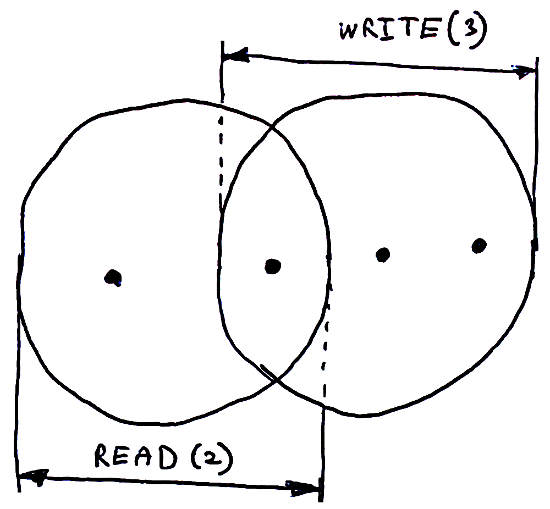 WRITE(3)
READ(2)